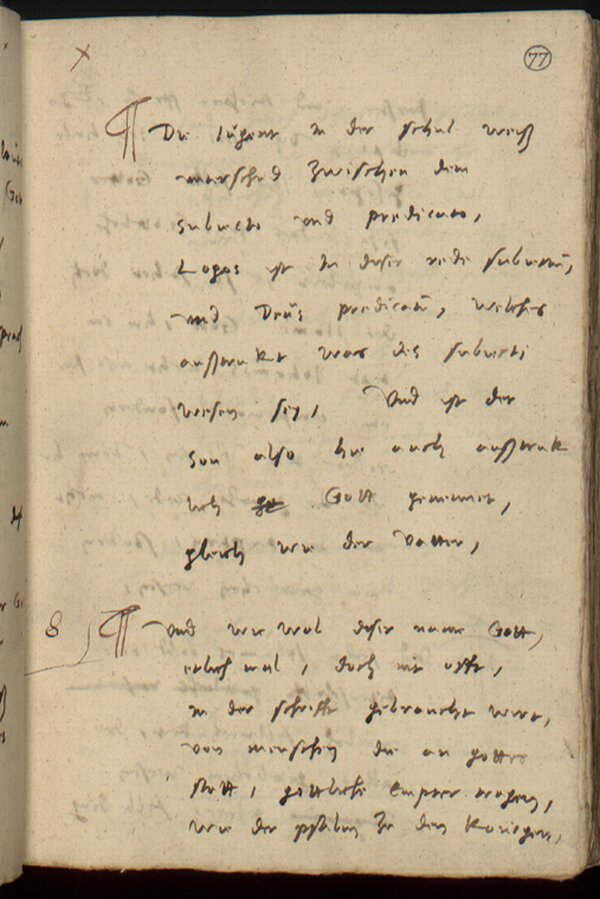 77
¶ Die iugent in der schul weiß
underschid zwischen dem
subiecto und predicato,
Logos ist in diser rede subiectū,
und Deus predicatū, welches
außtrukt was des subiecti
wesen sey, Und ist der
son also hie auch außtruk
lich Gott genennet,
gleich wie der vatter,
8 ¶ Und wie wol diser name Gott,
etlich mal, doch nit offt,
in der schrifft gebraucht wirt,
von menschen die an gottes
statt, göttliche empter tragen,
wie der psalm zu den Konigen,